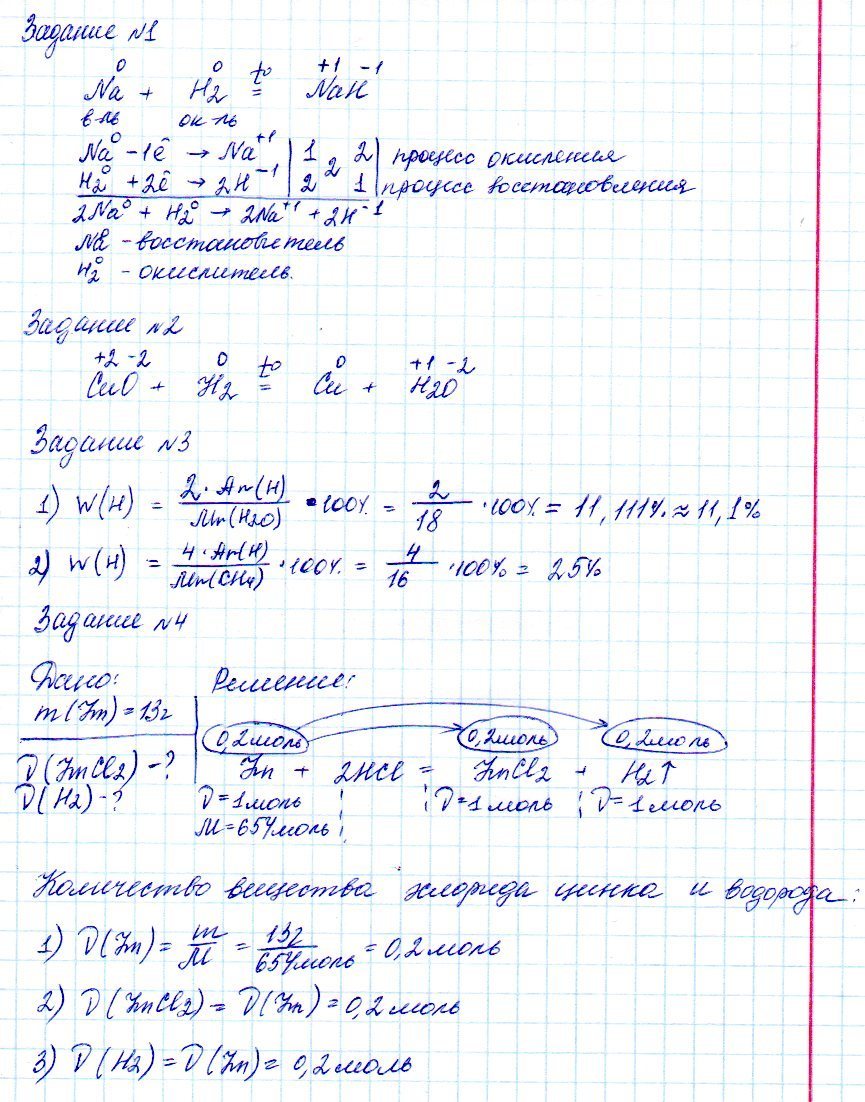 Задание №1
0 0 t° +1 -1
Na + H2 = NaH
в-ль ок-ль
Na⁰ -1ē → Na⁺¹ | 1 2 2 | процесс окисления
H2⁰ +2ē → 2H⁻¹ | 2 1 | процесс восстановления
2Na⁰ + H2⁰ → 2Na⁺¹ + 2H⁻¹
Na⁰ - восстановитель
H2⁰ - окислитель.
Задание №2
+2 -2 0 t° 0 +1 -2
CuO + H2 = Cu + H2O
Задание №3
1) W(H) = 2·Ar(H)/Mr(H2O) · 100% = 2/18 · 100% = 11,111% ≈ 11,1%
2) W(H) = 4·Ar(H)/Mr(CH4) · 100% = 4/16 · 100% = 25%
Задание №4
Дано: Решение:
m(Zn) = 13г
0,2моль 0,2моль 0,2моль
ν(ZnCl2) - ? Zn + 2HCl = ZnCl2 + H2↑
ν(H2) - ? ν=1моль ν=1моль ν=1моль
M=65г/моль
Количество вещества хлорида цинка и водорода:
1) ν(Zn) = m/M = 13г/65г/моль = 0,2моль
2) ν(ZnCl2) = ν(Zn) = 0,2моль
3) ν(H2) = ν(Zn) = 0,2моль